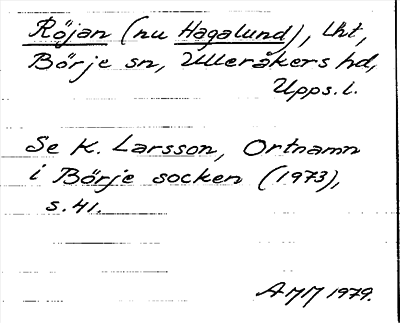 Röjan (nu Hagalund), lht,
Börje sn, Ulleråkers hd,
Upps. l.
Se K. Larsson, Ortnamn
i Börje socken (1973),
s. 41.
AMM 1979.